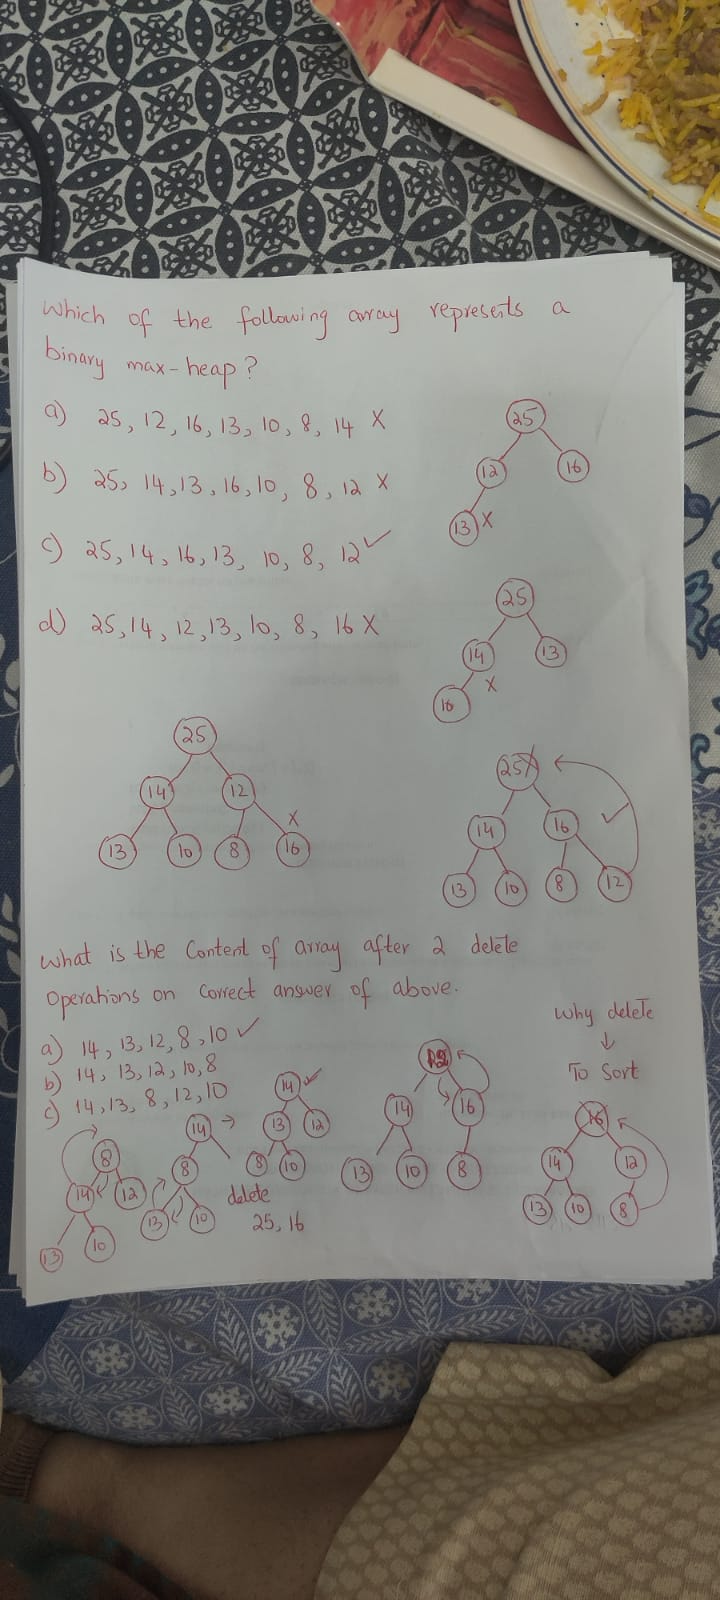 Which of the following array represents a
binary max-heap?
a) 25, 12, 16, 13, 10, 8, 14 X
b) 25, 14, 13, 16, 10, 8, 12 X
c) 25, 14, 16, 13, 10, 8, 12 ✓
d) 25, 14, 12, 13, 10, 8, 16 X
25
12 16
13 X
25
14 13
16 X
25
14 12
X
13 10 8 16
25 X
14 16 ✓
13 10 8 12
What is the Content of array after 2 delete
Operations on Correct answer of above.
a) 14, 13, 12, 8, 10 ✓
b) 14, 13, 12, 10, 8
c) 14, 13, 8, 12, 10
8
14 12
13 10
14
8
13 10
14 ✓
13 12
8 10
delete
25, 16
12
14 16
13 10 8
Why delete
↓
To Sort
16
14 12
13 10 8